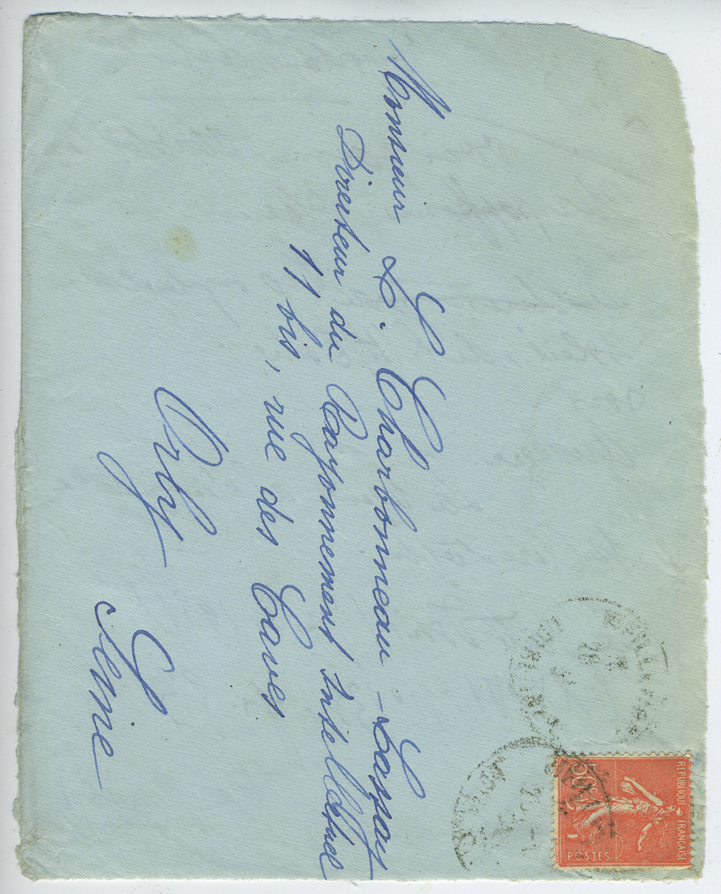 Monsieur L. Charbonneau-Lassay
Directeur du Rayonnement Intellectuel
11 bis, rue des Caves
Orly
Seine
REPUBLIQUE FRANÇAISE
50c
POSTES